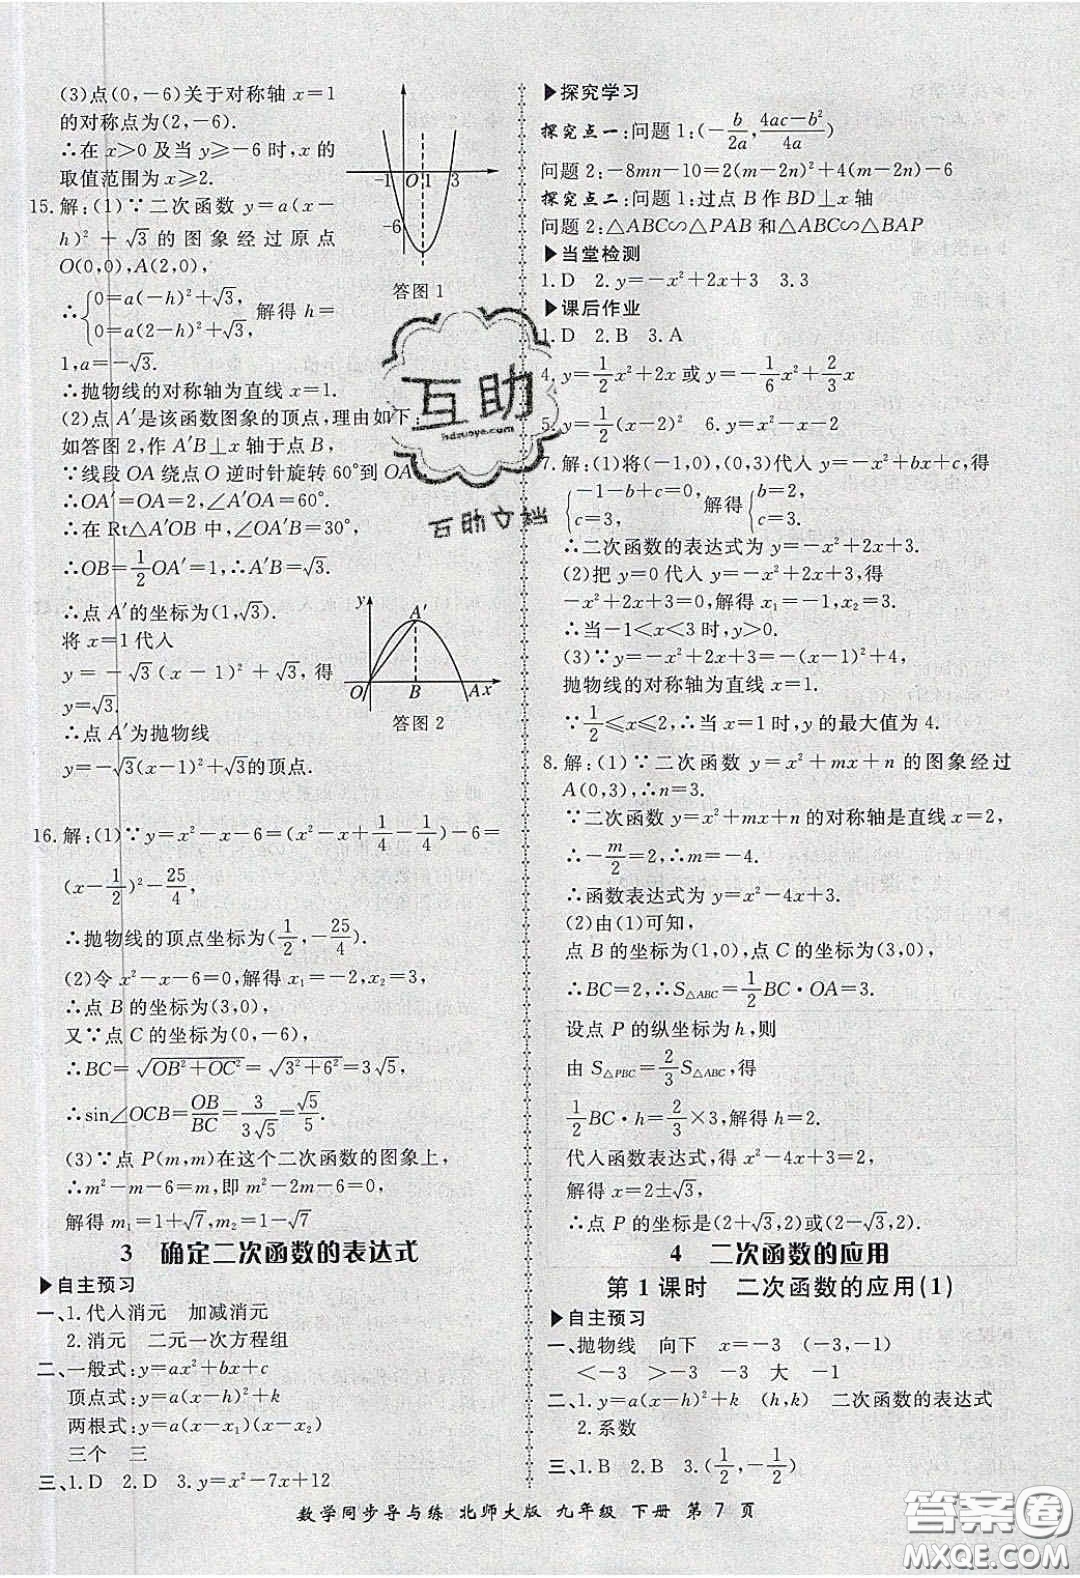 (3)点(0,-6)关于对称轴 x=1
的对称点为(2,-6).
∴在 x>0 及当 y≥-6 时,x 的
取值范围为 x≥2.
-1 O 1 3
-6
答图 1
15.解:(1)∵二次函数 y=a(x-
h)²+√3 的图象经过原点
O(0,0),A(2,0),
∴{0=a(-h)²+√3, 解得 h=
0=a(2-h)²+√3,
1,a=-√3.
∴抛物线的对称轴为直线 x=1.
(2)点 A′是该函数图象的顶点,理由如下:
如答图 2,作 A′B⊥x 轴于点 B,
∵线段 OA 绕点 O 逆时针旋转 60°到 OA
∴OA′=OA=2,∠A′OA=60°.
∴在 Rt△A′OB 中,∠OA′B=30°,
∴OB=1/2 OA′=1,∴A′B=√3.
∴点 A′的坐标为(1,√3).
将 x=1 代入
y=-√3(x-1)²+√3,得
y=√3.
∴点 A′为抛物线
y=-√3(x-1)²+√3的顶点.
y A′
O B A x
答图 2
16.解:(1)∵y=x²-x-6=(x²-x+1/4-1/4)-6=
(x-1/2)²-25/4,
∴抛物线的顶点坐标为(1/2,-25/4).
(2)令 x²-x-6=0,解得 x₁=-2,x₂=3,
∴点 B 的坐标为(3,0),
又∵点 C 的坐标为(0,-6),
∴BC=√(OB²+OC²)=√(3²+6²)=3√5,
∴sin∠OCB=OB/BC=3/(3√5)=√5/5.
(3)∵点 P(m,m)在这个二次函数的图象上,
∴m²-m-6=m,即 m²-2m-6=0,
解得 m₁=1+√7,m₂=1-√7
3 确定二次函数的表达式
▶自主预习
一、1.代入消元 加减消元
2.消元 二元一次方程组
二、一般式:y=ax²+bx+c
顶点式:y=a(x-h)²+k
两根式:y=a(x-x₁)(x-x₂)
三个 三
三、1.D 2.D 3.y=x²-7x+12
▶探究学习
探究点一:问题 1:(-b/2a,(4ac-b²)/4a)
问题 2:-8mn-10=2(m-2n)²+4(m-2n)-6
探究点二:问题 1:过点 B 作 BD⊥x 轴
问题 2:△ABC∽△PAB 和△ABC∽△BAP
▶当堂检测
1.D 2.y=-x²+2x+3 3.3
▶课后作业
1.D 2.B 3.A
4.y=1/2 x²+2x 或 y=-1/6 x²+2/3 x
5.y=1/2(x-2)² 6.y=x²-x-2
7.解:(1)将(-1,0),(0,3)代入 y=-x²+bx+c,得
{-1-b+c=0, 解得{b=2,
c=3, c=3.
∴二次函数的表达式为 y=-x²+2x+3.
(2)把 y=0 代入 y=-x²+2x+3,得
-x²+2x+3=0,解得 x₁=-1,x₂=3.
∴当-1<x<3 时,y>0.
(3)∵y=-x²+2x+3=-(x-1)²+4,
抛物线的对称轴为直线 x=1.
∵1/2≤x≤2,∴当 x=1 时,y 的最大值为 4.
8.解:(1)∵二次函数 y=x²+mx+n 的图象经过
A(0,3),∴n=3.
∵二次函数 y=x²+mx+n 的对称轴是直线 x=2,
∴-m/2=2,∴m=-4.
∴函数表达式为 y=x²-4x+3.
(2)由(1)可知,
点 B 的坐标为(1,0),点 C 的坐标为(3,0),
∴BC=2,∴S△ABC=1/2 BC·OA=3.
设点 P 的纵坐标为 h,则
由 S△PBC=2/3 S△ABC,得
1/2 BC·h=2/3×3,解得 h=2.
代入函数表达式,得 x²-4x+3=2,
解得 x=2±√3,
∴点 P 的坐标是(2+√3,2)或(2-√3,2).
4 二次函数的应用
第 1 课时 二次函数的应用(1)
▶自主预习
一、抛物线 向下 x=-3 (-3,-1)
<-3 >-3 -3 大 -1
二、1.y=a(x-h)²+k (h,k) 二次函数的表达式
2.系数
三、1.B 2.B 3.(1/2,-1/2)
数学同步导与练 北师大版 九年级 下册 第 7 页
互助
答案圈
MXQE.COM